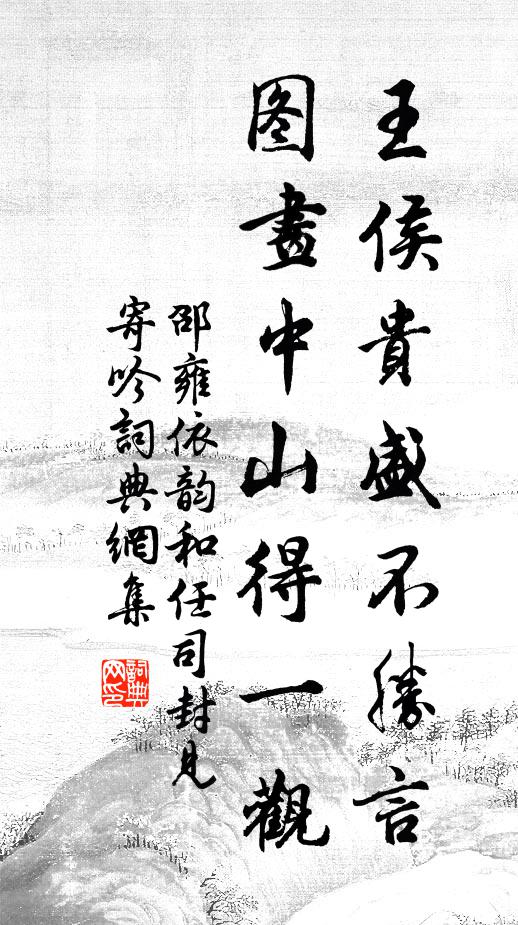 王侯貴盛不勝言
图畫中山得一觀
邵雍依韵和任司封見
寄吟詞典網集
詞典网印